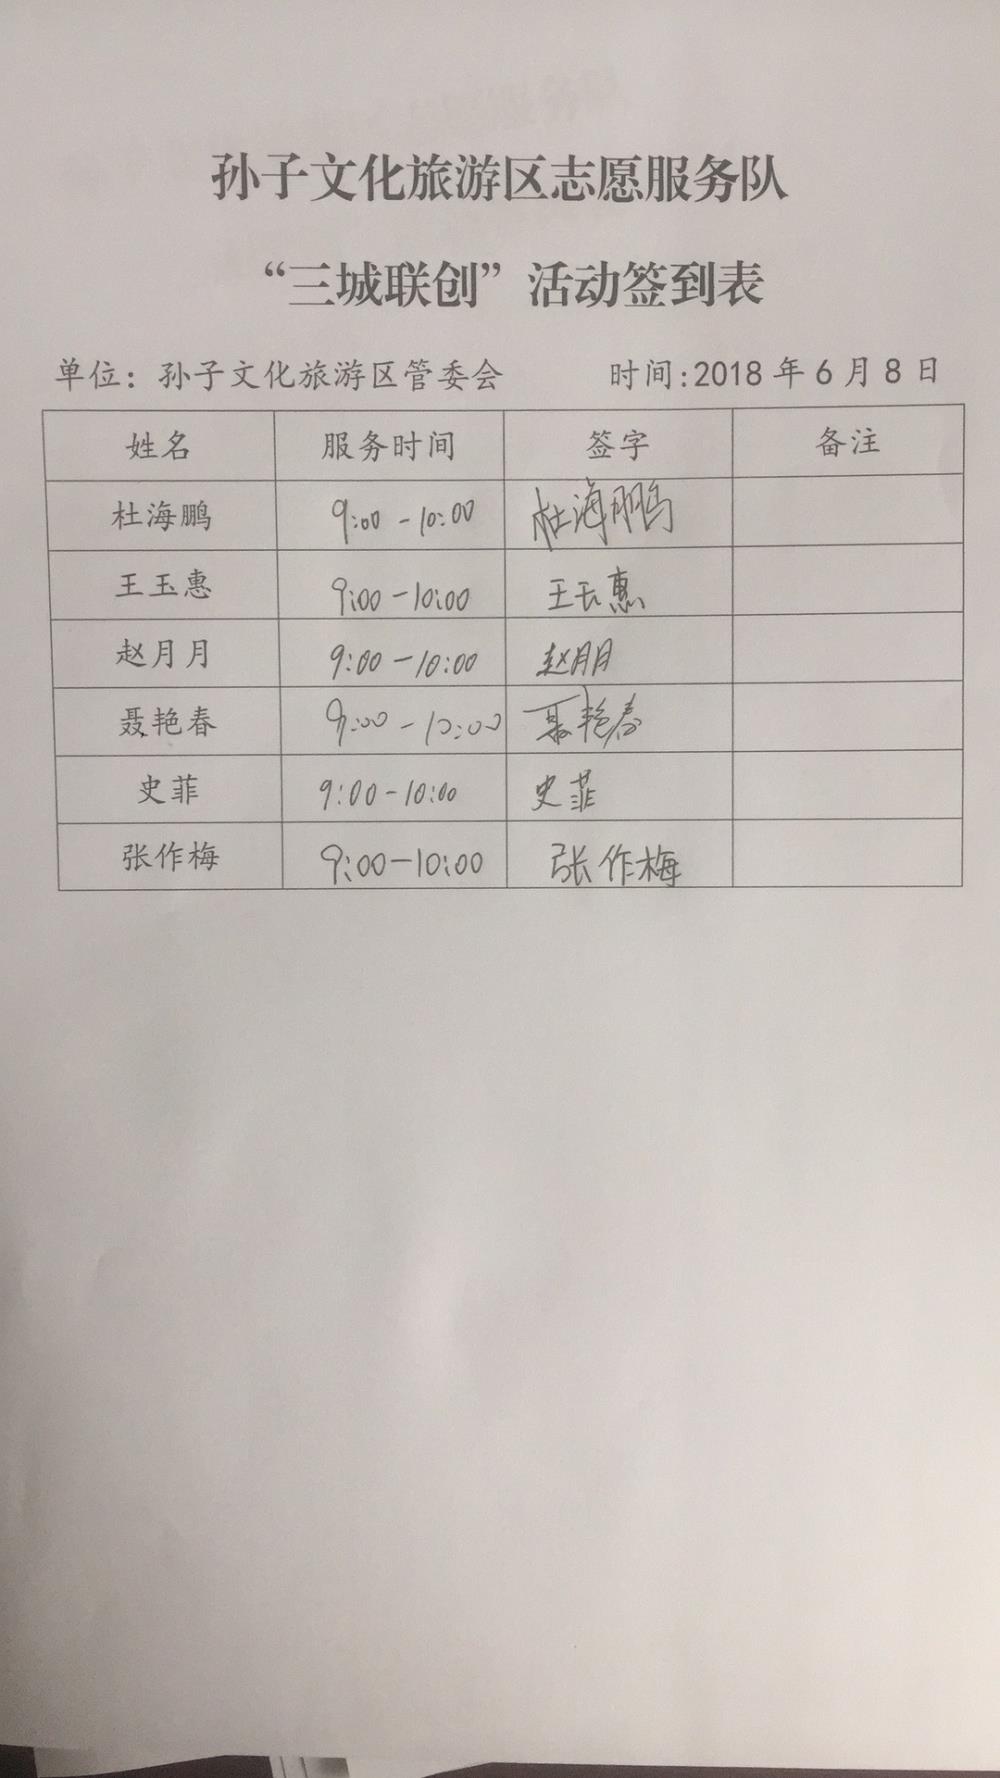 孙子文化旅游区志愿服务队
“三城联创”活动签到表
单位：孙子文化旅游区管委会 时间:2018年6月8日
姓名 服务时间 签字 备注
杜海鹏 9:00-10:00 杜海鹏
王玉惠 9:00-10:00 王玉惠
赵月月 9:00-10:00 赵月月
聂艳春 9:00-10:00 聂艳春
史菲 9:00-10:00 史菲
张作梅 9:00-10:00 张作梅